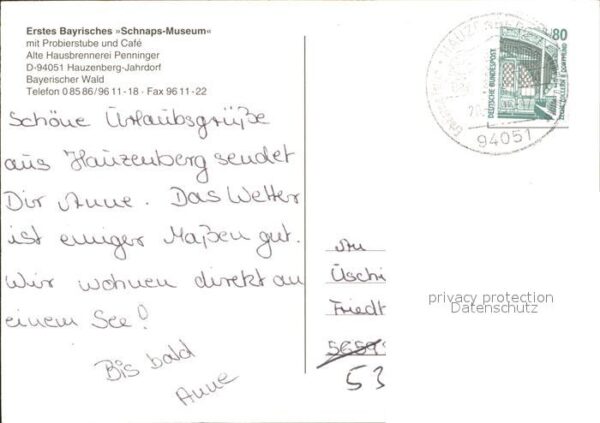 Erstes Bayrisches »Schnaps-Museum«
mit Probierstube und Café
Alte Hausbrennerei Penninger
D-94051 Hauzenberg-Jahrdorf
Bayerischer Wald
Telefon 0 85 86/96 11-18 · Fax 96 11-22
Schöne Urlaubsgrüße
aus Hauzenberg sendet
Dir Anne. Das Wetter
ist einiger Maßen gut.
Wir wohnen direkt an
einem See!
Bis bald
Anne
80
DEUTSCHE BUNDESPOST
ZECHE ZOLLERN II DORTMUND
94051
An
Üschi
Friedt
56599
53
privacy protection
Datenschutz